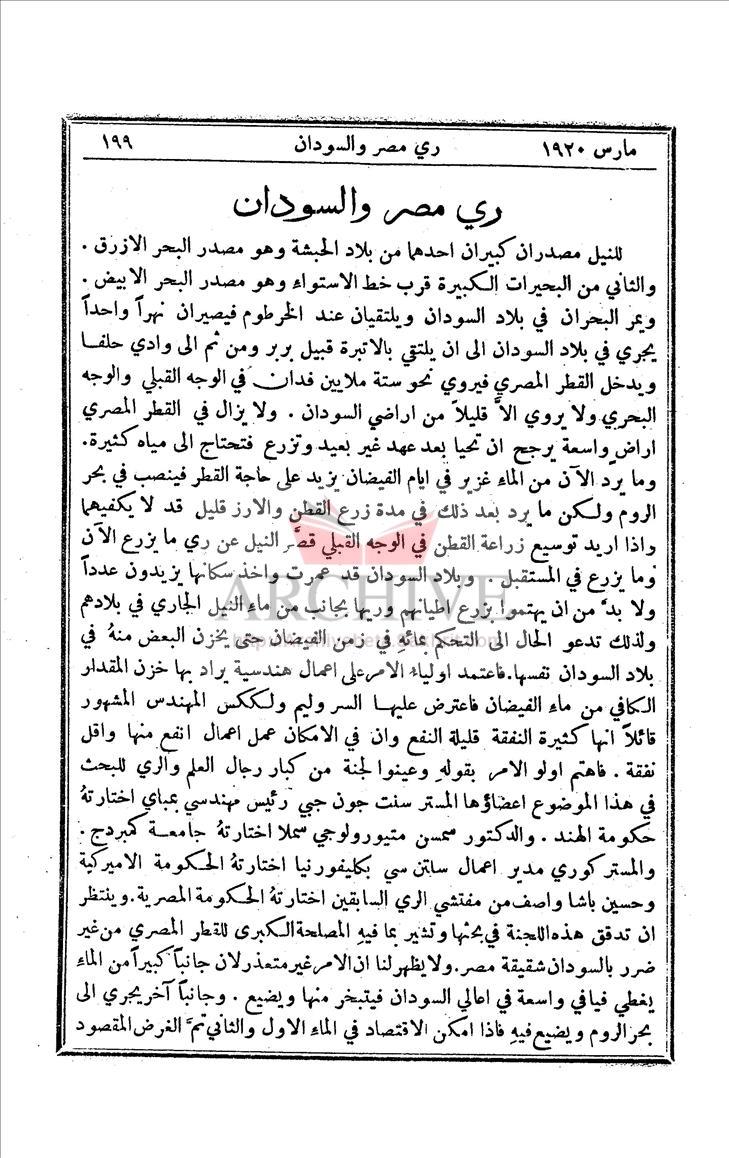 مارس ١٩٢٠ ري مصر والسودان ١٩٩
ري مصر والسودان
للنيل مصدران كبيران احدهما من بلاد الحبشة وهو مصدر البحر الازرق .
والثاني من البحيرات الكبيرة قرب خط الاستواء وهو مصدر البحر الابيض .
ويمر البحران في بلاد السودان ويلتقيان عند الخرطوم فيصيران نهراً واحداً
يجري في بلاد السودان الى ان يلتقي بالاتبرة قبيل بربر ومن ثم الى وادي حلفا
ويدخل القطر المصري فيروي نحو ستة ملايين فدان في الوجه القبلي والوجه
البحري ولا يروي الاَّ قليلاً من اراضي السودان . ولا يزال في القطر المصري
اراضٍ واسعة يرجح ان تحيا بعد عهد غير بعيد وتزرع فتحتاج الى مياه كثيرة.
وما يرد الآن من الماء غزير في ايام الفيضان يزيد على حاجة القطر فينصب في بحر
الروم ولكن ما يرد بعد ذلك في مدة زرع القطن والارز قليل قد لا يكفيهما
واذا اريد توسيع زراعة القطن في الوجه القبلي قصَّر النيل عن ري ما يزرع الآن
وما يزرع في المستقبل . وبلاد السودان قد عمرت واخذ سكانها يزيدون عدداً
ARCHIVE
ولا بدَّ من ان يهتموا بزرع اطيانهم وريها بجانب من ماء النيل الجاري في بلادهم
ولذلك تدعو الحال الى التحكم بمائهِ في زمن الفيضان حتى يخزن البعض منهُ في
بلاد السودان نفسها.فاعتمد اولياء الامر على اعمال هندسية يراد بها خزن المقدار
الكافي من ماء الفيضان فاعترض عليها السر وليم ولككس المهندس المشهور
قائلاً انها كثيرة النفقة قليلة النفع وان في الامكان عمل اعمال انفع منها واقل
نفقة . فاهتم اولو الامر بقولهِ وعينوا لجنة من كبار رجال العلم والري للبحث
في هذا الموضوع اعضاؤها المستر سنت جون جبي رئيس مهندسي بمباي اختارتهُ
حكومة الهند . والدكتور سمسن متيورولوجي سملا اختارتهُ جامعة كمبردج .
والمستر كوري مدير اعمال سابتن سي بكليفورنيا اختارتهُ الحكومة الاميركية
وحسين باشا واصف من مفتشي الري السابقين اختارتهُ الحكومة المصرية.وينتظر
ان تدقق هذه اللجنة في بحثها وتشير بما فيهِ المصلحة الكبرى للقطر المصري من غير
ضرر بالسودان شقيقة مصر.ولا يظهر لنا ان الامر غير متعذر لان جانباً كبيراً من الماء
يغطي فيافي واسعة في اعالي السودان فيتبخر منها ويضيع . وجانباً آخر يجري الى
بحر الروم ويضيع فيهِ فاذا امكن الاقتصاد في الماء الاول والثاني تمَّ الغرض المقصود